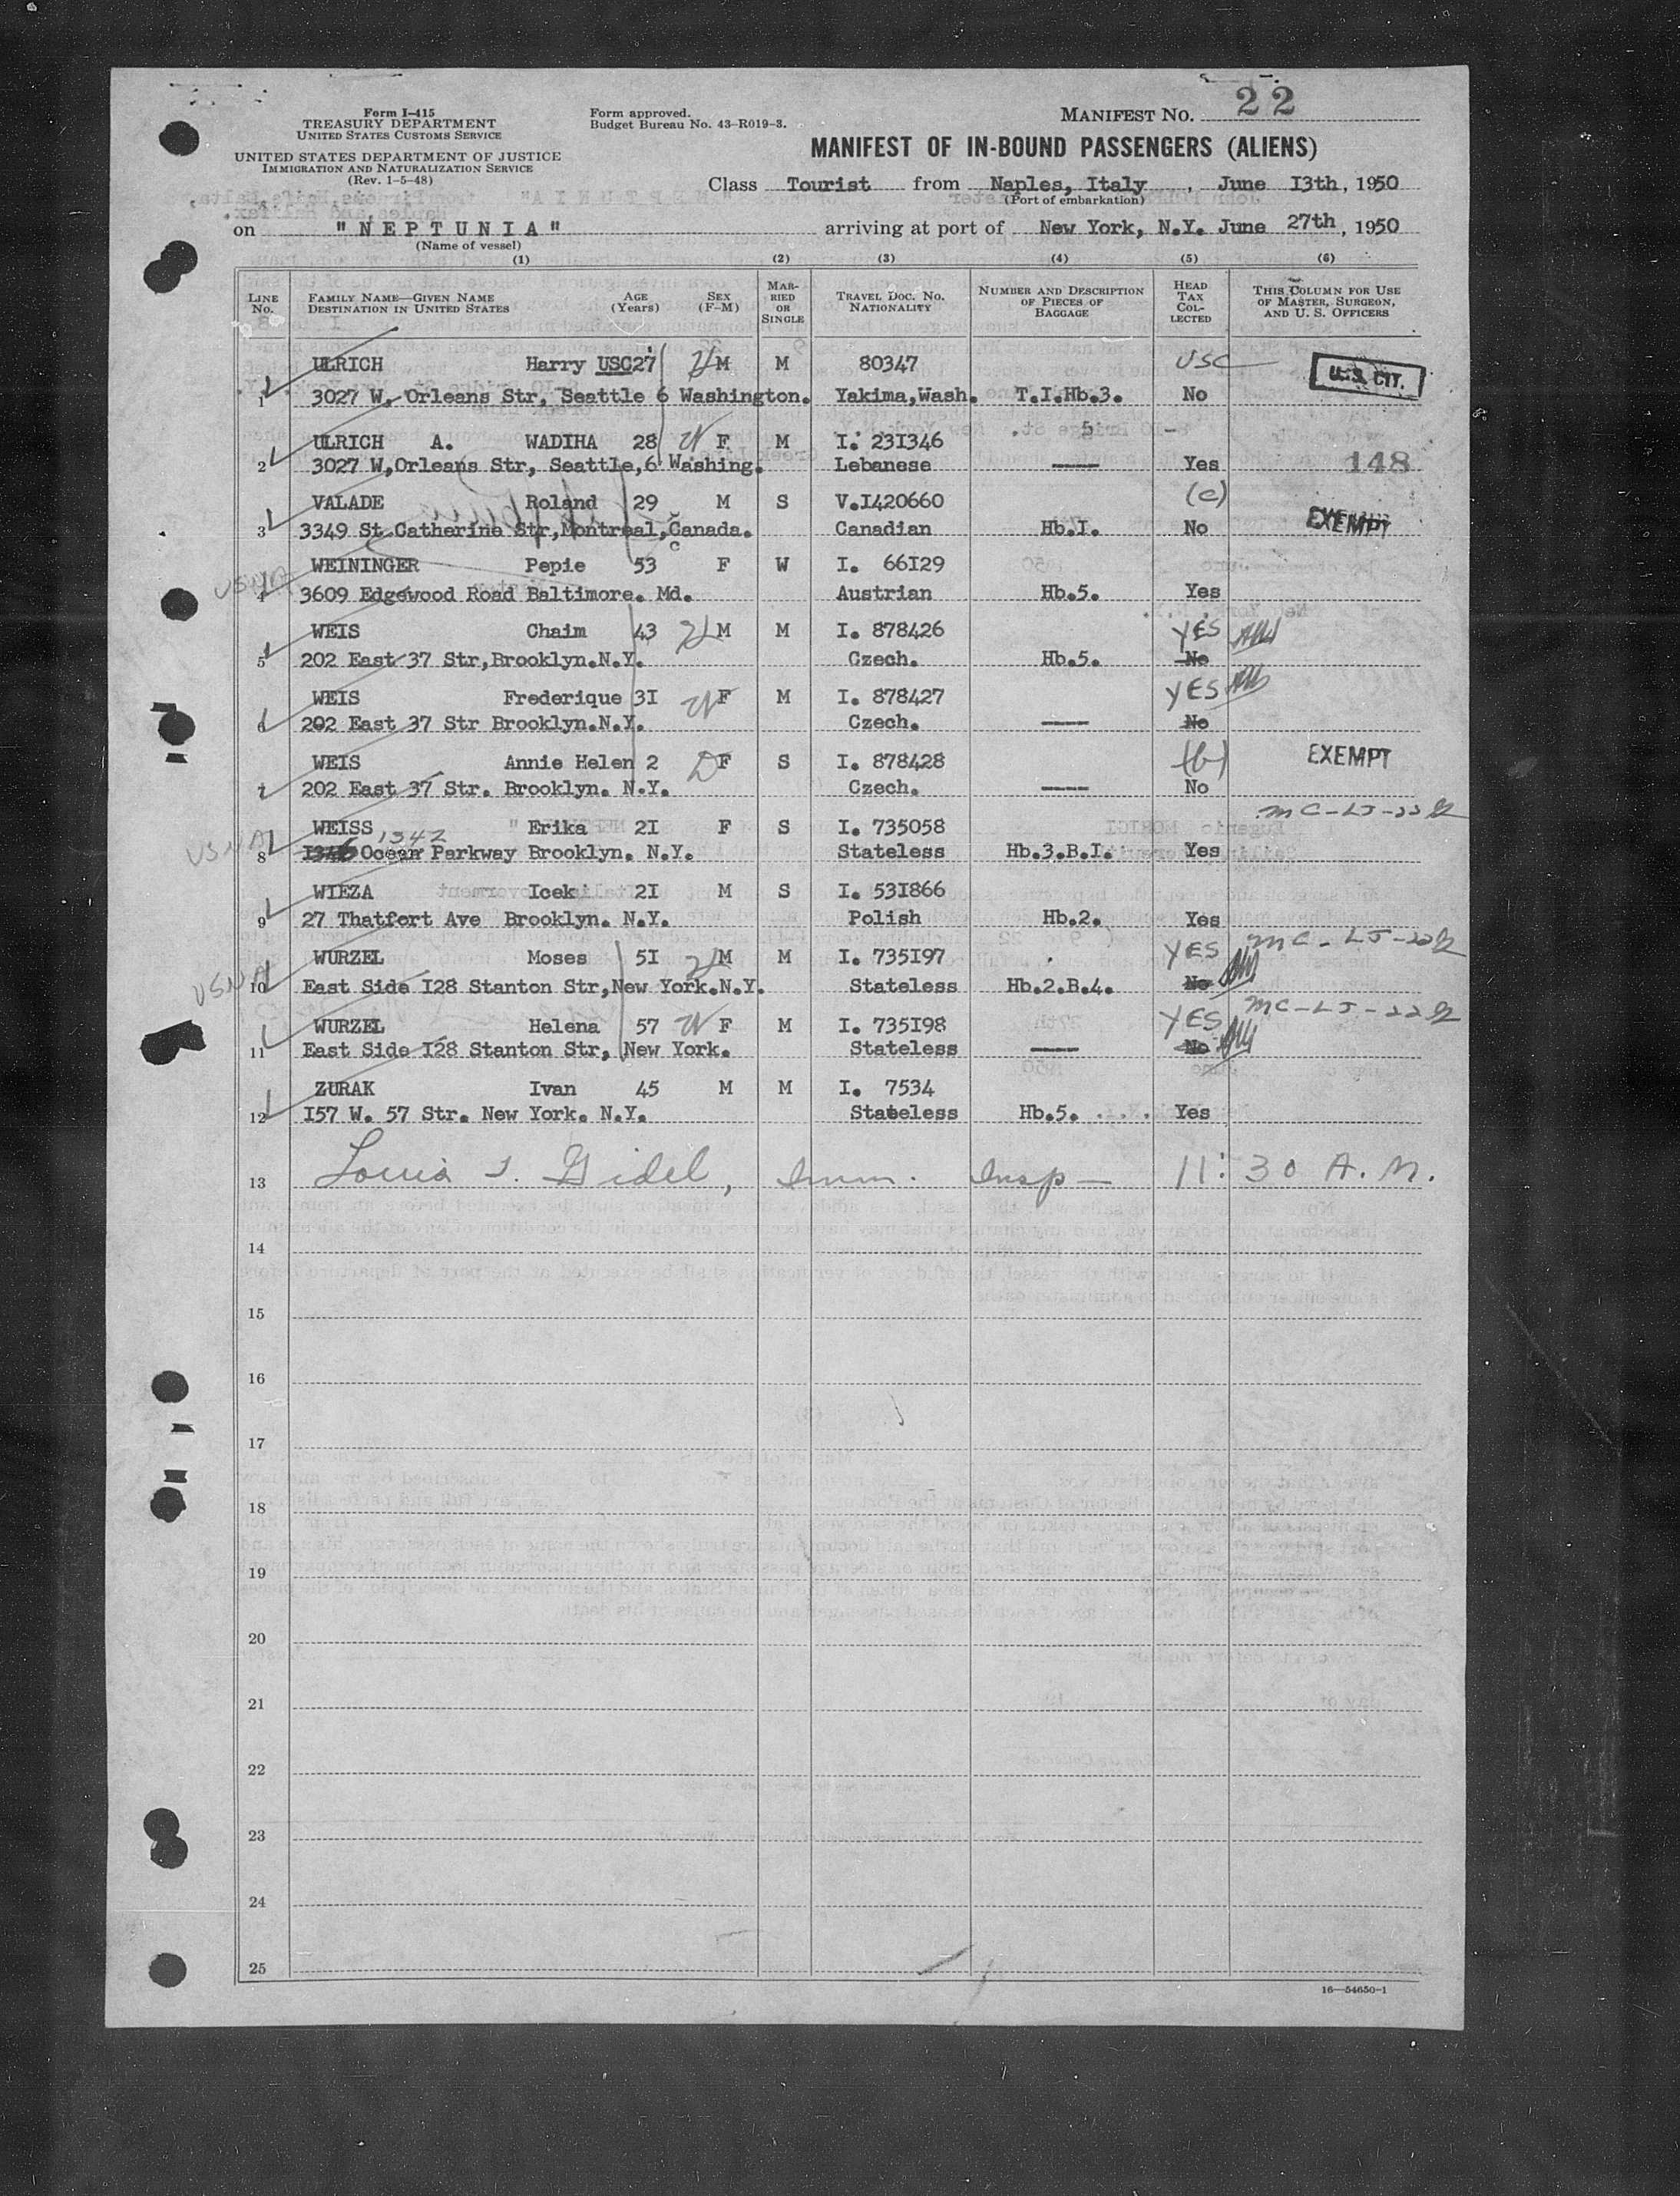 Form I-415
TREASURY DEPARTMENT
UNITED STATES CUSTOMS SERVICE
UNITED STATES DEPARTMENT OF JUSTICE
IMMIGRATION AND NATURALIZATION SERVICE
(Rev. 1-5-48)
Form approved.
Budget Bureau No. 43-R019-3.
MANIFEST NO. 22
MANIFEST OF IN-BOUND PASSENGERS (ALIENS)
Class Tourist from Naples, Italy, June I3th, 1950
(Port of embarkation)
on "NEPTUNIA" arriving at port of New York, N.Y. June 27th, 1950
(Name of vessel)
(1) (2) (3) (4) (5) (6)
LINE No. FAMILY NAME—GIVEN NAME DESTINATION IN UNITED STATES AGE (Years) SEX (F-M) MARRIED OR SINGLE TRAVEL DOC. NO. NATIONALITY NUMBER AND DESCRIPTION OF PIECES OF BAGGAGE HEAD TAX COLLECTED THIS COLUMN FOR USE OF MASTER, SURGEON, AND U. S. OFFICERS
ULRICH Harry USC27 H M M 80347 USC U.S. CIT.
1 3027 W. Orleans Str, Seattle 6 Washington. Yakima,Wash. T.I.Hb.3. No
ULRICH A. WADIHA 28 W F M I. 23I346 5 -
2 3027 W,Orleans Str, Seattle,6 Washing. Lebanese ---- Yes 148
VALADE Roland 29 M S V.I420660 (c)
3 3349 St.Catherine Str,Montreal,Canada. Canadian Hb.I. No EXEMPT
USNA WEININGER Pepie 53 F W I. 66I29
4 3609 Edgewood Road Baltimore. Md. Austrian Hb.5. Yes
WEIS Chaim 43 H M M I. 878426 YES
5 202 East 37 Str,Brooklyn.N.Y. Czech. Hb.5. No
WEIS Frederique 3I W F M I. 878427 YES
6 202 East 37 Str Brooklyn.N.Y. Czech. ---- No
WEIS Annie Helen 2 D F S I. 878428 (b) EXEMPT
7 202 East 37 Str. Brooklyn. N.Y. Czech. ---- No
USNA WEISS 1342 Erika 2I F S I. 735058 MC-LJ-22
8 Ocean Parkway Brooklyn. N.Y. Stateless Hb.3.B.I. Yes
WIEZA Icek 2I M S I. 53I866
9 27 Thatfort Ave Brooklyn. N.Y. Polish Hb.2. Yes
USNA WURZEL Moses 5I H M M I. 735I97 YES MC-LJ-22
10 East Side I28 Stanton Str,New York.N.Y. Stateless Hb.2.B.4. No
WURZEL Helena 57 W F M I. 735I98 YES MC-LJ-22
11 East Side I28 Stanton Str, New York. Stateless ---- No
ZURAK Ivan 45 M M I. 7534
12 I57 W. 57 Str. New York. N.Y. Stateless Hb.5. .... Yes
13 Louis Gidel, Imm. Insp — 11:30 A.M.
14
15
16
17
18
19
20
21
22
23
24
25
16—54650-1